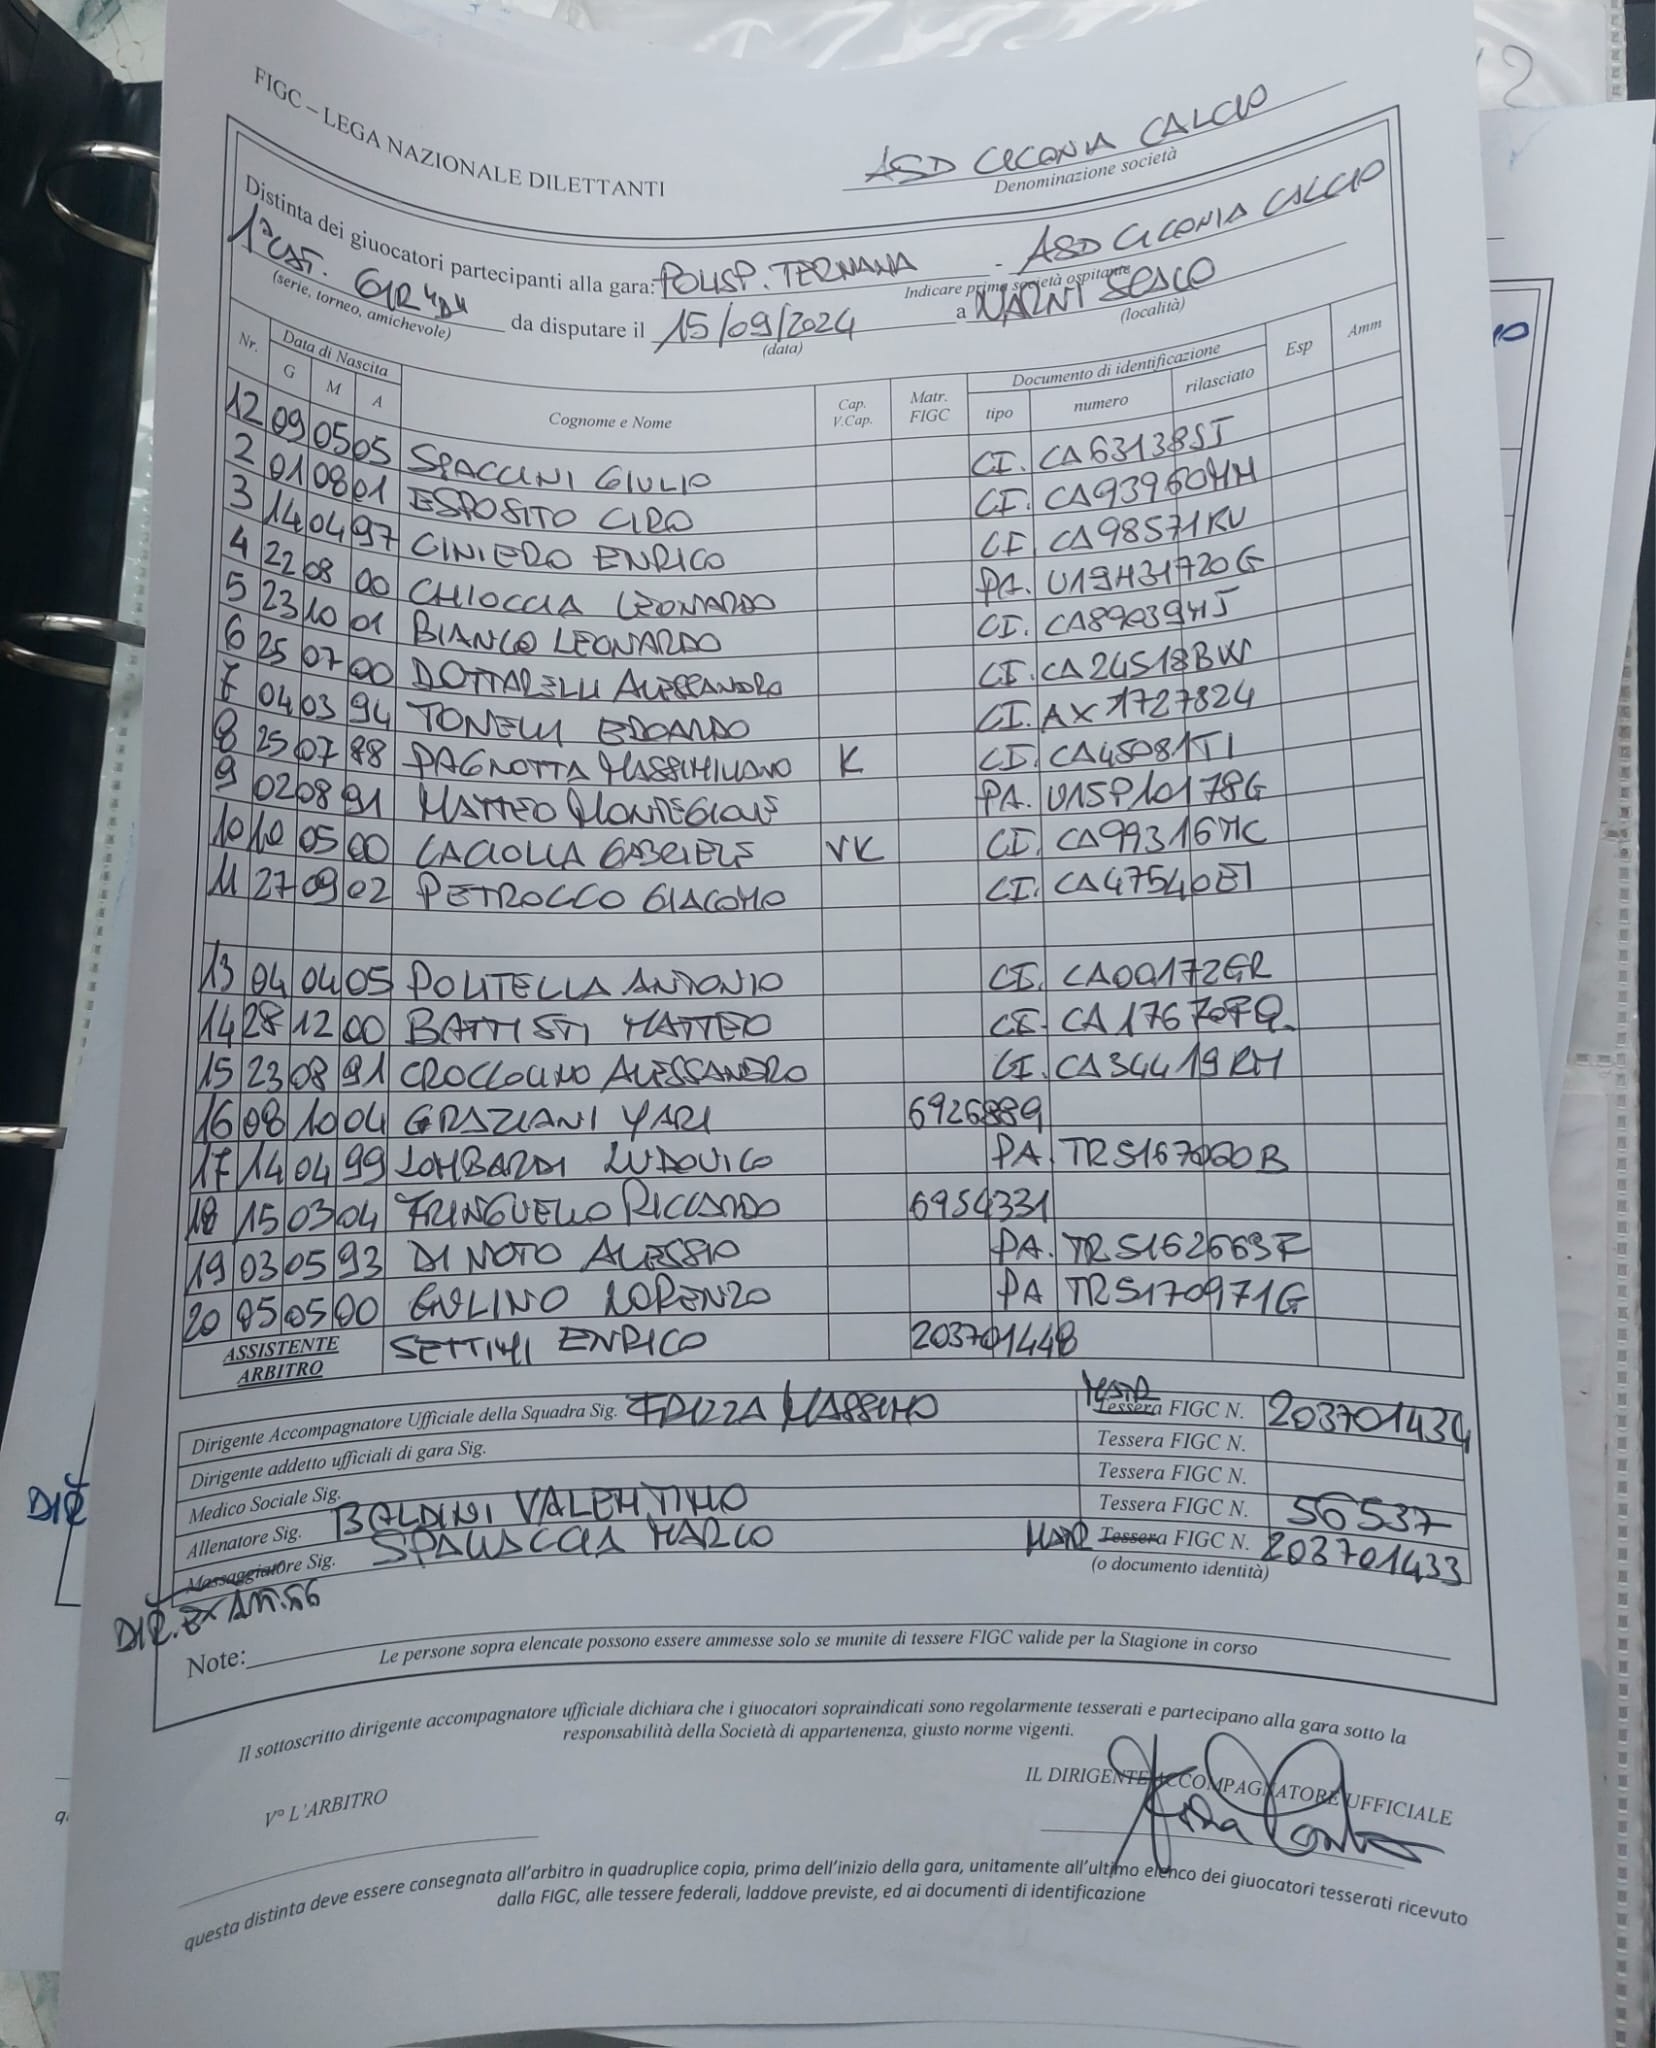 FIGC – LEGA NAZIONALE DILETTANTI
ASD CICONIA CALCIO
Denominazione società
Distinta dei giuocatori partecipanti alla gara: POLISP. TERNANA - ASD CICONIA CALCIO
Indicare prima società ospitante
1ª CAT. GIR "D" da disputare il 15/09/2024 a NARNI
(serie, torneo, amichevole) (data) (località)
Nr. Data di Nascita Cognome e Nome Cap. V.Cap. Matr. FIGC Documento di identificazione Esp Amm
G M A tipo numero rilasciato
12 09 05 05 SPACCINI GIULIO CI. CA63138ST
2 01 08 01 ESPOSITO CIRO CI. CA93960HH
3 14 04 97 CINIERO ENRICO CI CA98571KU
4 22 08 00 CHIOCCIA LEONARDO PA. U19H31720G
5 23 10 01 BIANCO LEONARDO CI. CA89039HJ
6 25 07 00 DOTTARELLI ALESSANDRO CI. CA24518BW
7 04 03 94 TONELLI EDOARDO CI. AX1727824
8 25 07 88 PAGNOTTA MASSIMILIANO K CI. CA45081TI
9 02 08 91 MATTEO MONTEGIOVE PA. U15P10178G
10 10 05 00 CACIOLLA GABRIELE VK CI. CA99316MC
11 27 09 02 PETROCCO GIACOMO CI. CA47540EI
13 04 04 05 POLITELLA ANTONIO CI. CA00172GR
14 28 12 00 BATTISTI MATTEO CI. CA17670FQ
15 23 08 91 CROCCOLINO ALESSANDRO CI. CA34419RM
16 08 10 04 GRAZIANI YARI 6926889
17 14 04 99 LOMBARDI LUDOVICO PA. TR5167020B
18 15 03 04 FRINGUELLO RICCARDO 6954331
19 03 05 93 DI NOTO ALESSIO PA. TR5162663F
20 05 05 00 GULINO LORENZO PA TR5170971G
ASSISTENTE ARBITRO SETTIMI ENRICO 203701448
Dirigente Accompagnatore Ufficiale della Squadra Sig. FRIZZA MASSIMO MATR Tessera FIGC N. 203701434
Dirigente addetto ufficiali di gara Sig. Tessera FIGC N.
Medico Sociale Sig. Tessera FIGC N.
Allenatore Sig. BALDINI VALENTINO Tessera FIGC N. 56537
Massaggiatore Sig. SPALLACCIA MARCO MATR Tessera FIGC N. 203701433
(o documento identità)
DIR. EX ART. 66
Note:
Le persone sopra elencate possono essere ammesse solo se munite di tessere FIGC valide per la Stagione in corso
Il sottoscritto dirigente accompagnatore ufficiale dichiara che i giuocatori sopraindicati sono regolarmente tesserati e partecipano alla gara sotto la
responsabilità della Società di appartenenza, giusto norme vigenti.
V° L'ARBITRO
IL DIRIGENTE ACCOMPAGNATORE UFFICIALE
questa distinta deve essere consegnata all'arbitro in quadruplice copia, prima dell'inizio della gara, unitamente all'ultimo elenco dei giuocatori tesserati ricevuto
dalla FIGC, alle tessere federali, laddove previste, ed ai documenti di identificazione
DIR